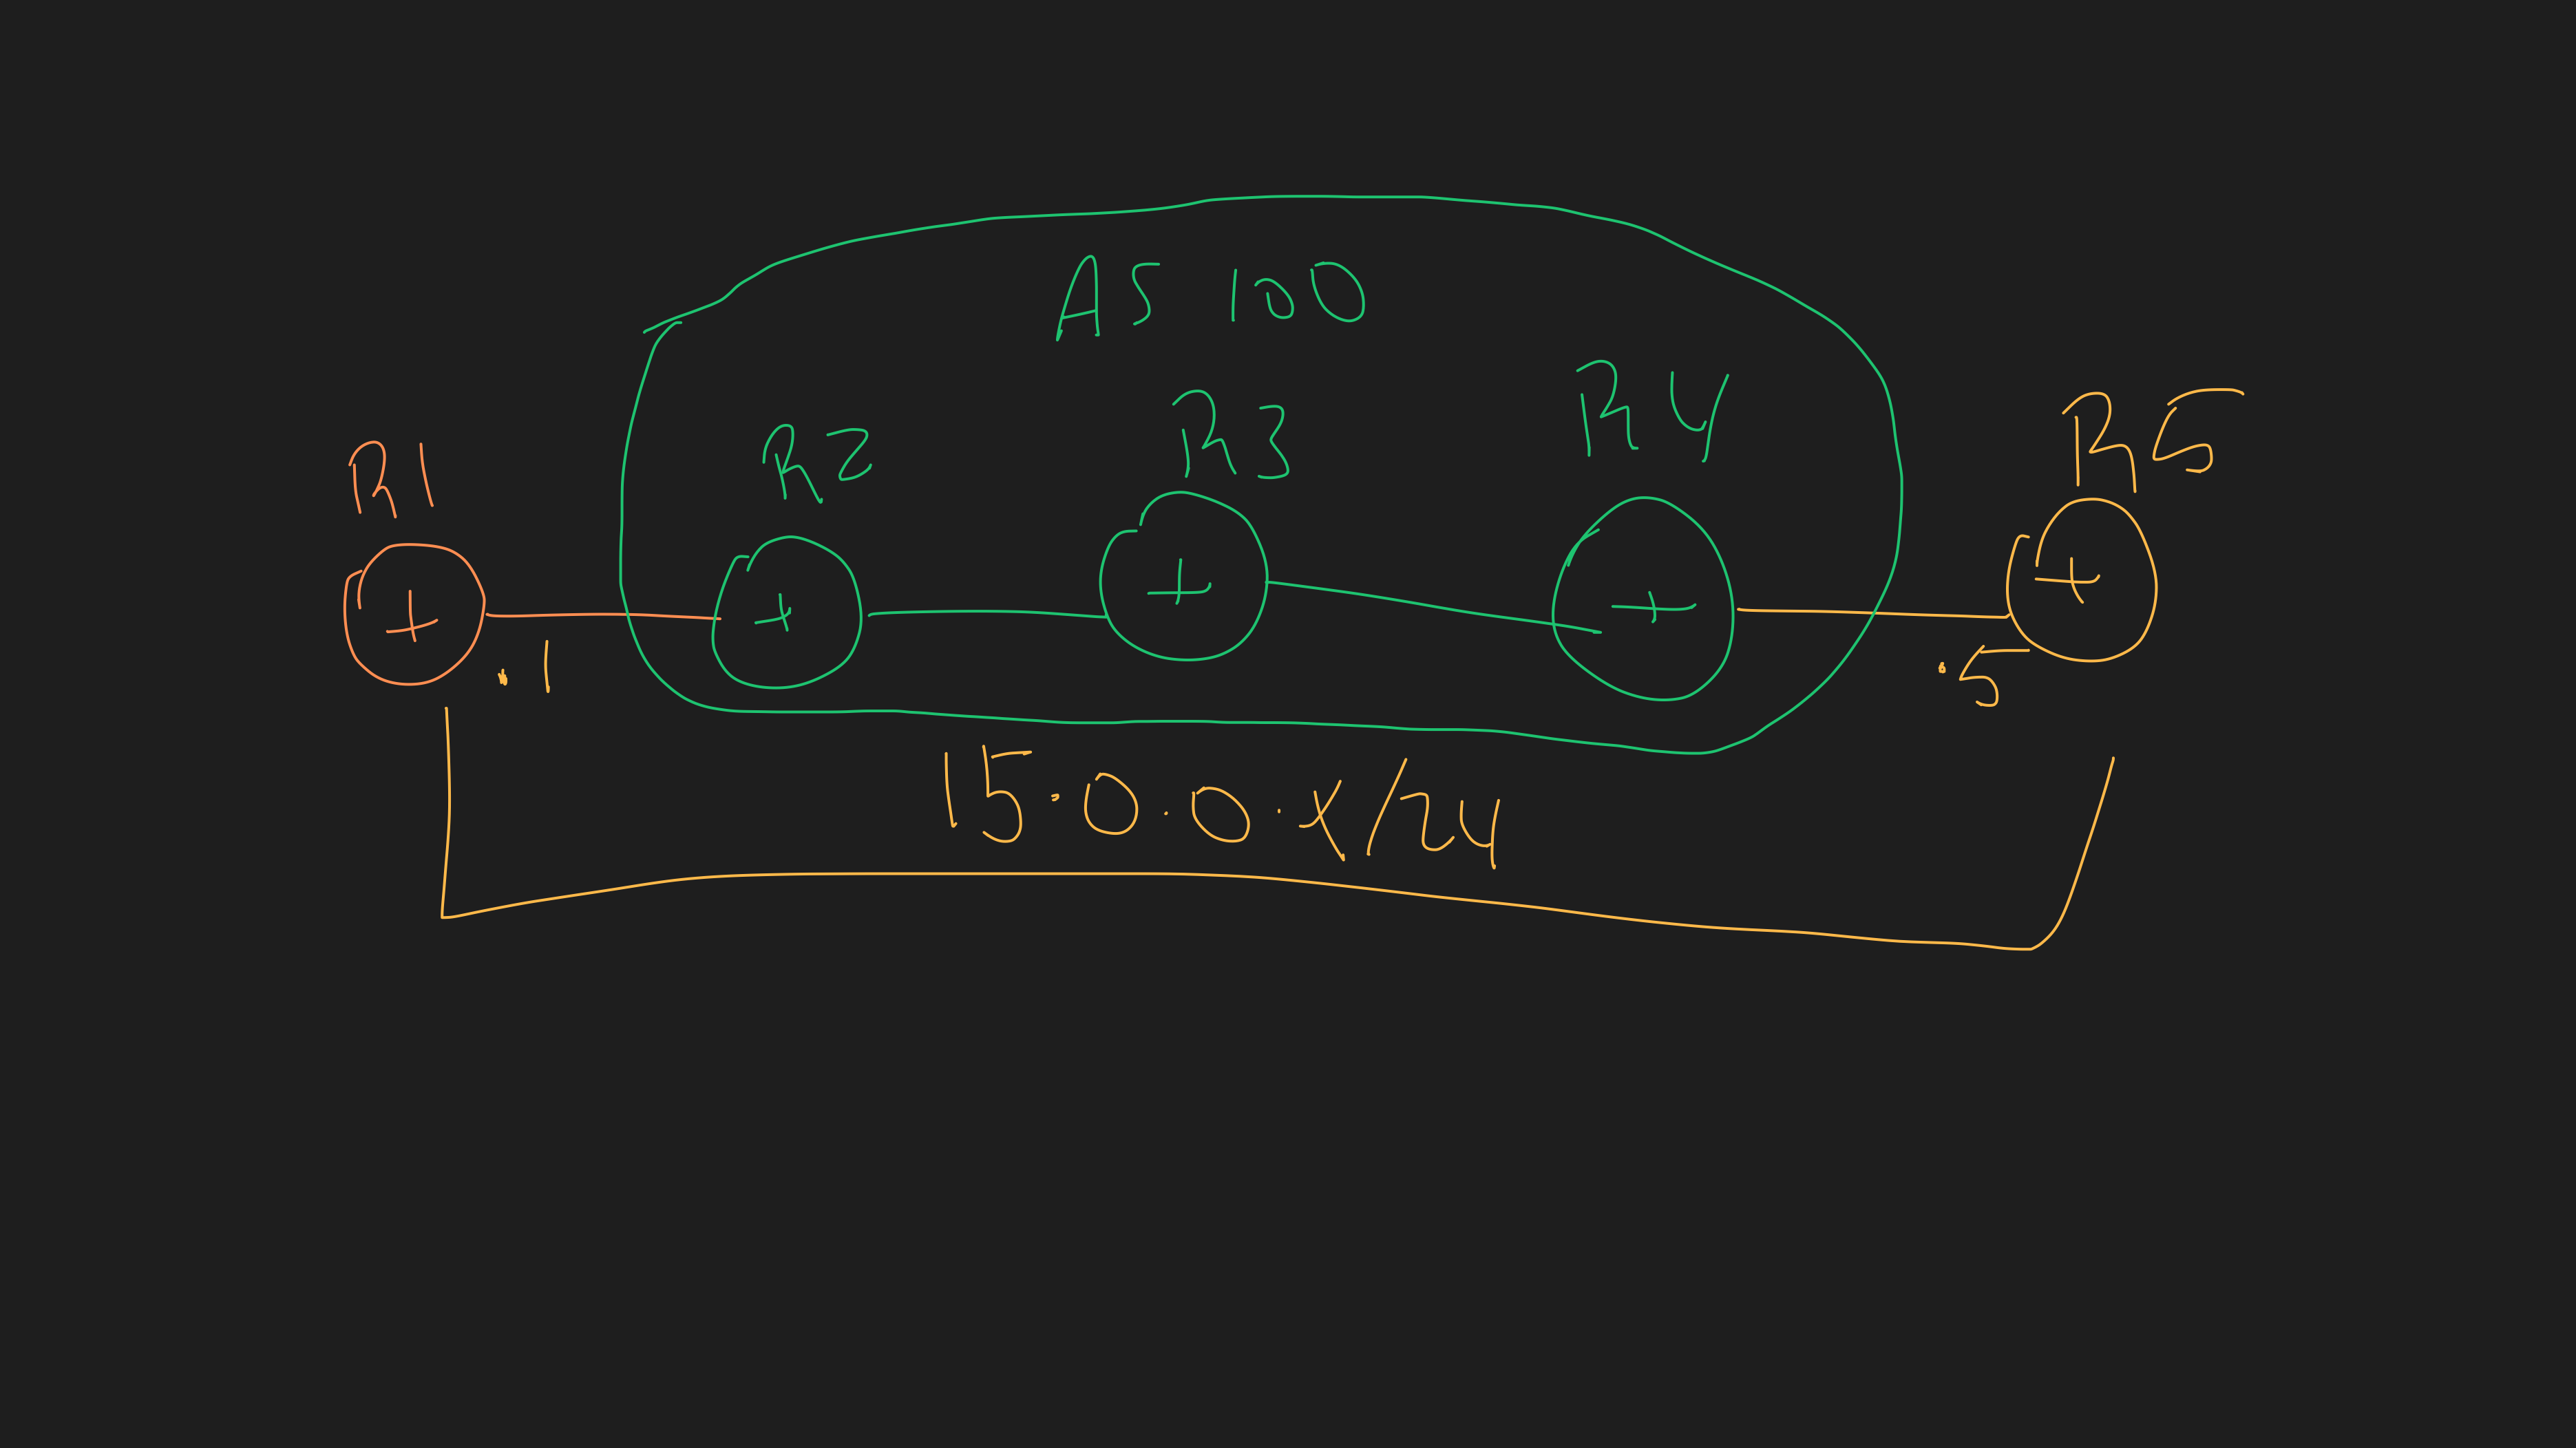 AS 100
R1
R2
R3
R4
R5
.1
.5
15.0.0.x/24